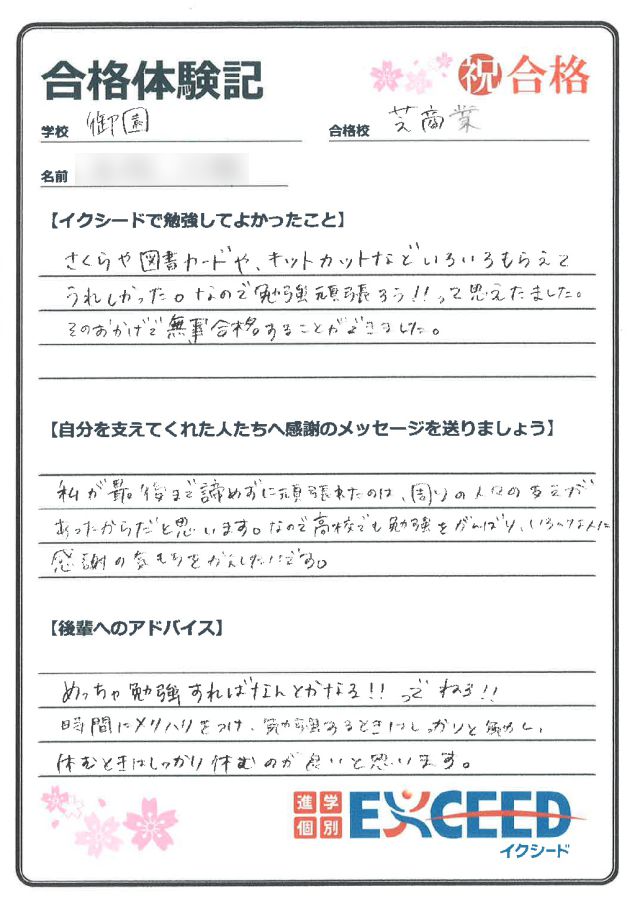 合格体験記
祝 合格
学校 御園
合格校 芝商業
名前
【イクシードで勉強してよかったこと】
さくらや図書カードや、キットカットなどいろいろもらえて
うれしかった。なので勉強頑張ろう!!って思えたました。
そのおかげで無事合格することができました。
【自分を支えてくれた人たちへ感謝のメッセージを送りましょう】
私が最後まで諦めずに頑張れたのは、周りの人々の支えが
あったからだと思います。なので高校でも勉強をがんばり、いろいろな人に
感謝の気もちを伝えたいです。
【後輩へのアドバイス】
めっちゃ勉強すればなんとかなる!! ってねる!!
時間にメリハリをつけ、勉強するときはしっかりと勉強し、
休むときはしっかり休むのが良いと思います。
進学
個別
EXCEED
イクシード